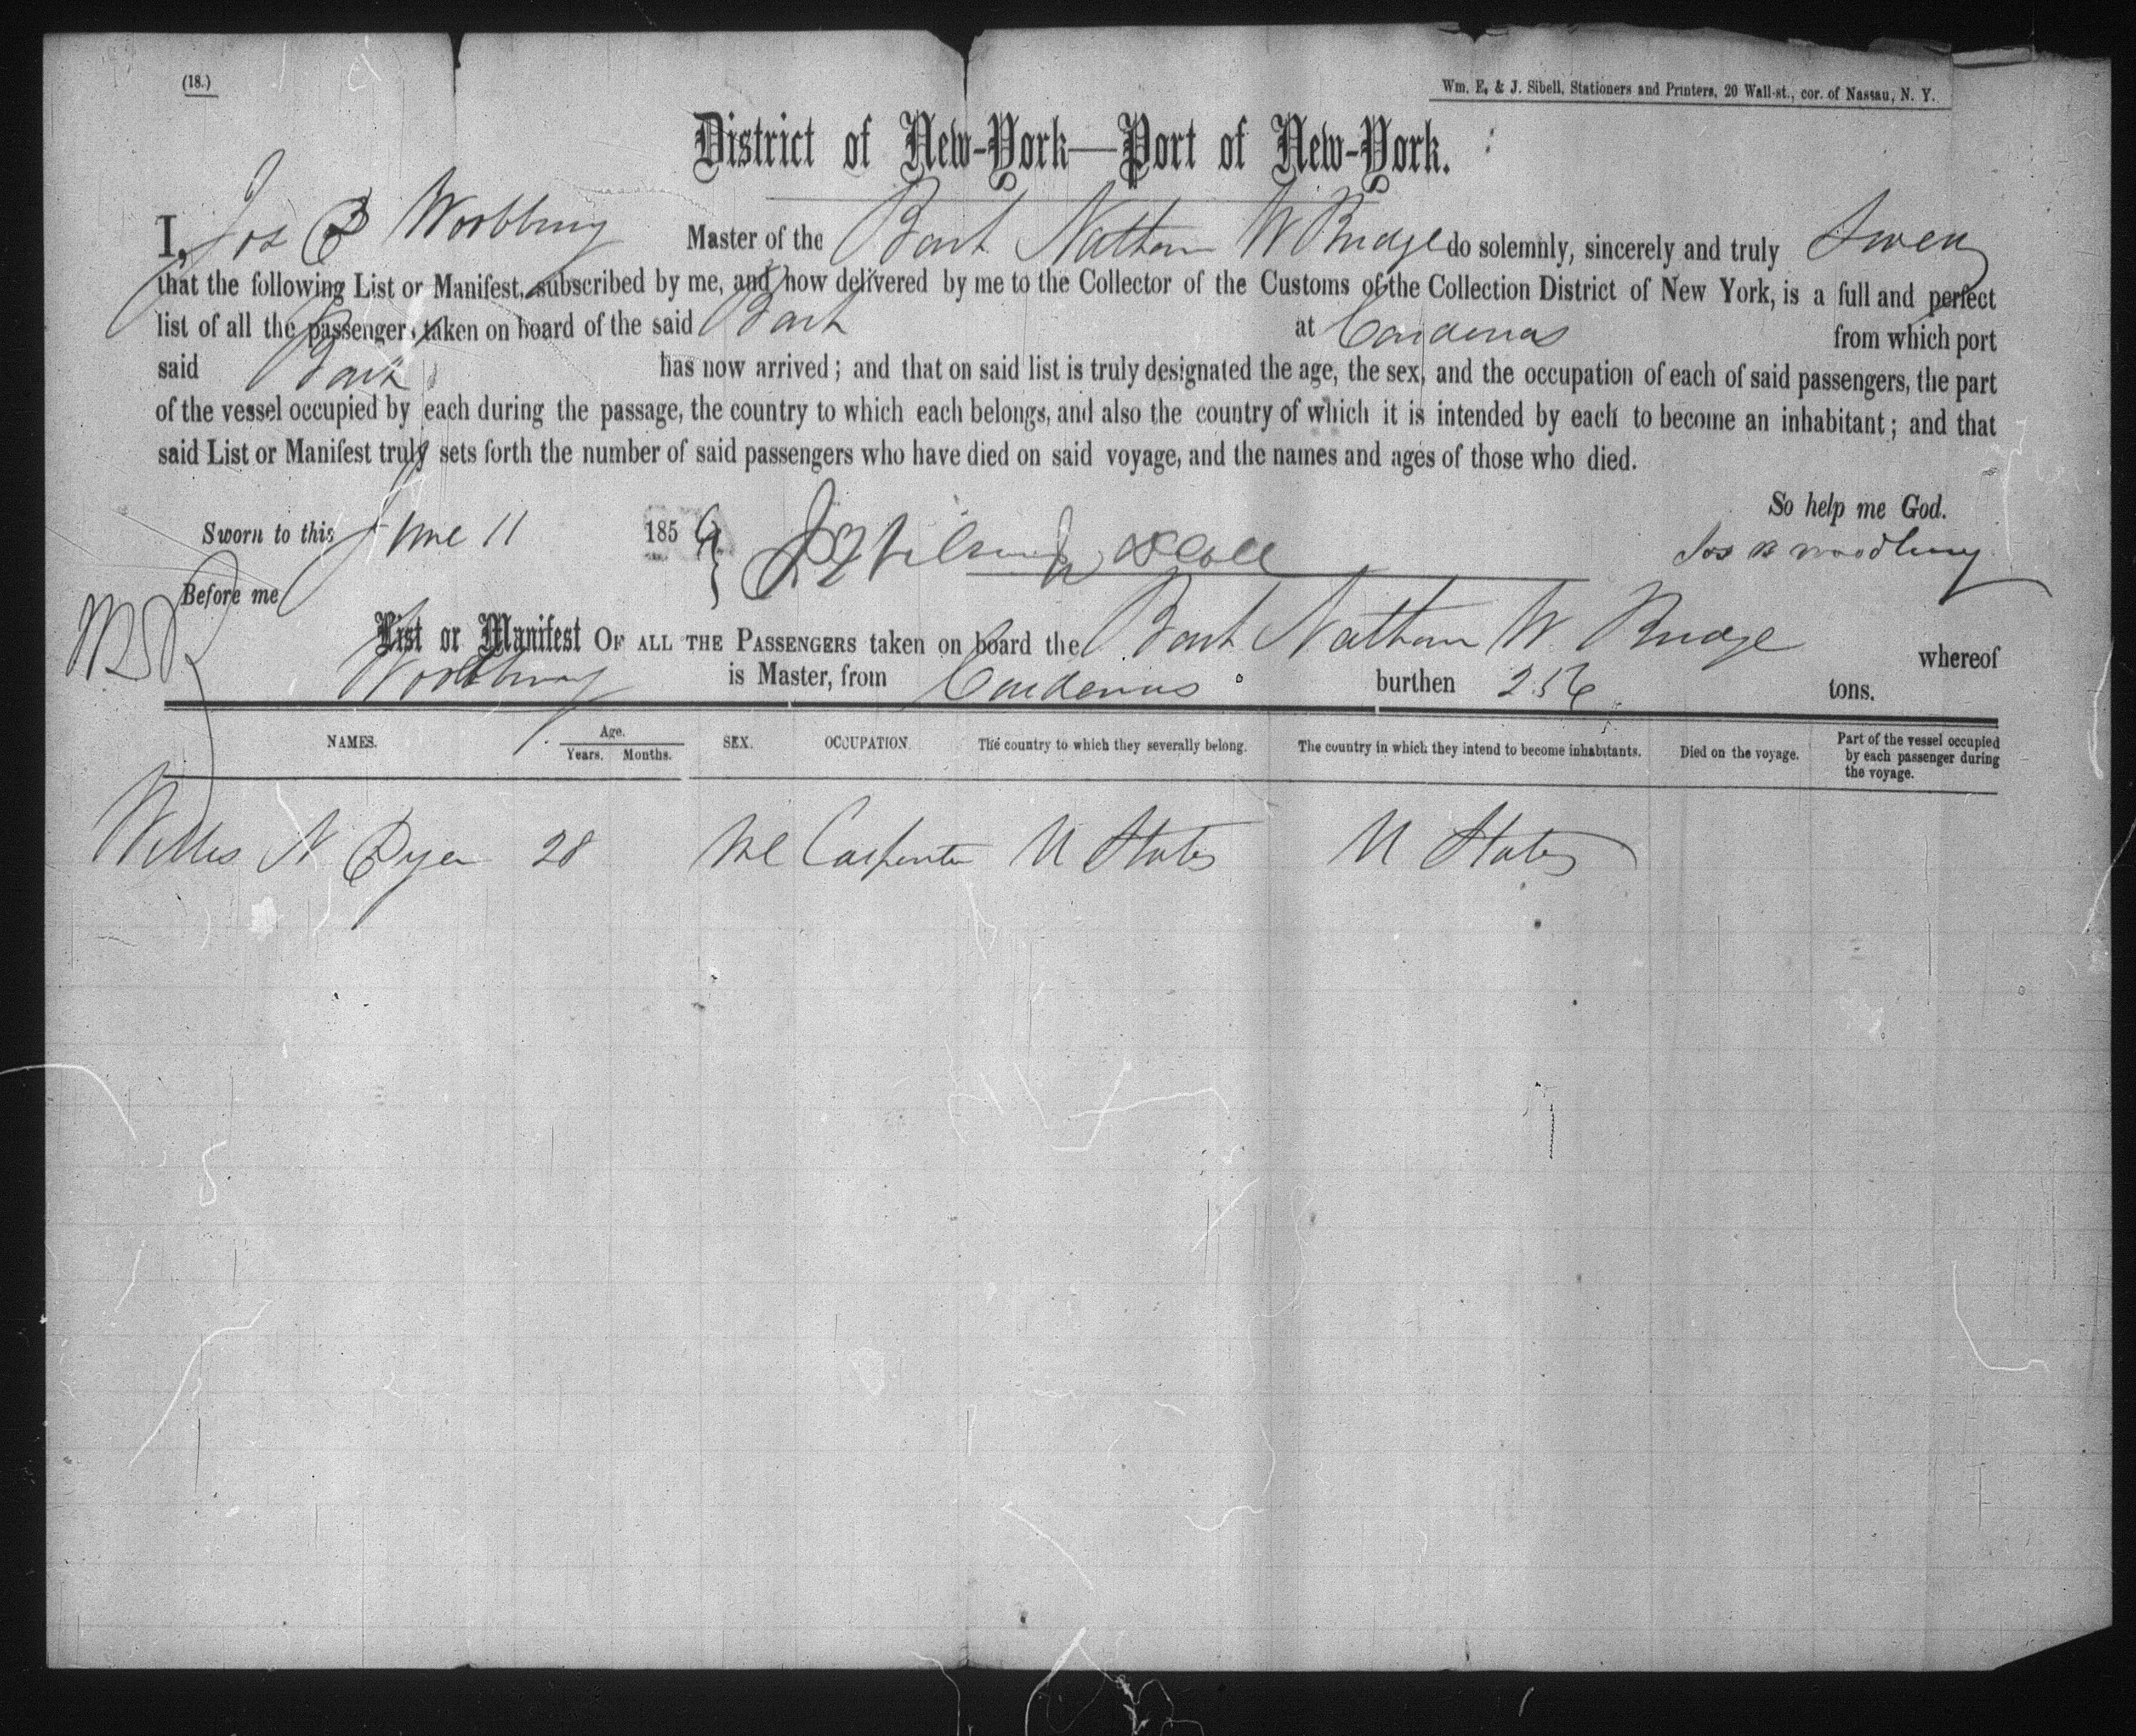 (18.)
Wm. E. & J. Sibell, Stationers and Printers, 20 Wall-st., cor. of Nassau, N. Y.
District of New-York—Port of New-York.
I, Jos B Woodbury Master of the Bark Nathan W Bridge do solemnly, sincerely and truly Swear
that the following List or Manifest, subscribed by me, and now delivered by me to the Collector of the Customs of the Collection District of New York, is a full and perfect
list of all the passengers taken on board of the said Bark at Cardenas from which port
said Bark has now arrived; and that on said list is truly designated the age, the sex, and the occupation of each of said passengers, the part
of the vessel occupied by each during the passage, the country to which each belongs, and also the country of which it is intended by each to become an inhabitant; and that
said List or Manifest truly sets forth the number of said passengers who have died on said voyage, and the names and ages of those who died.
So help me God.
Sworn to this June 11 1856
Jos B Woodbury
Before me
List or Manifest OF ALL THE PASSENGERS taken on board the Bark Nathan W. Bridge whereof
Woodbury is Master, from Cardenas burthen 256 tons.
NAMES. Age. Years. Months. SEX. OCCUPATION The country to which they severally belong. The country in which they intend to become inhabitants. Died on the voyage. Part of the vessel occupied by each passenger during the voyage.
Willis N Dyer 28 Ml Carpenter U States U States